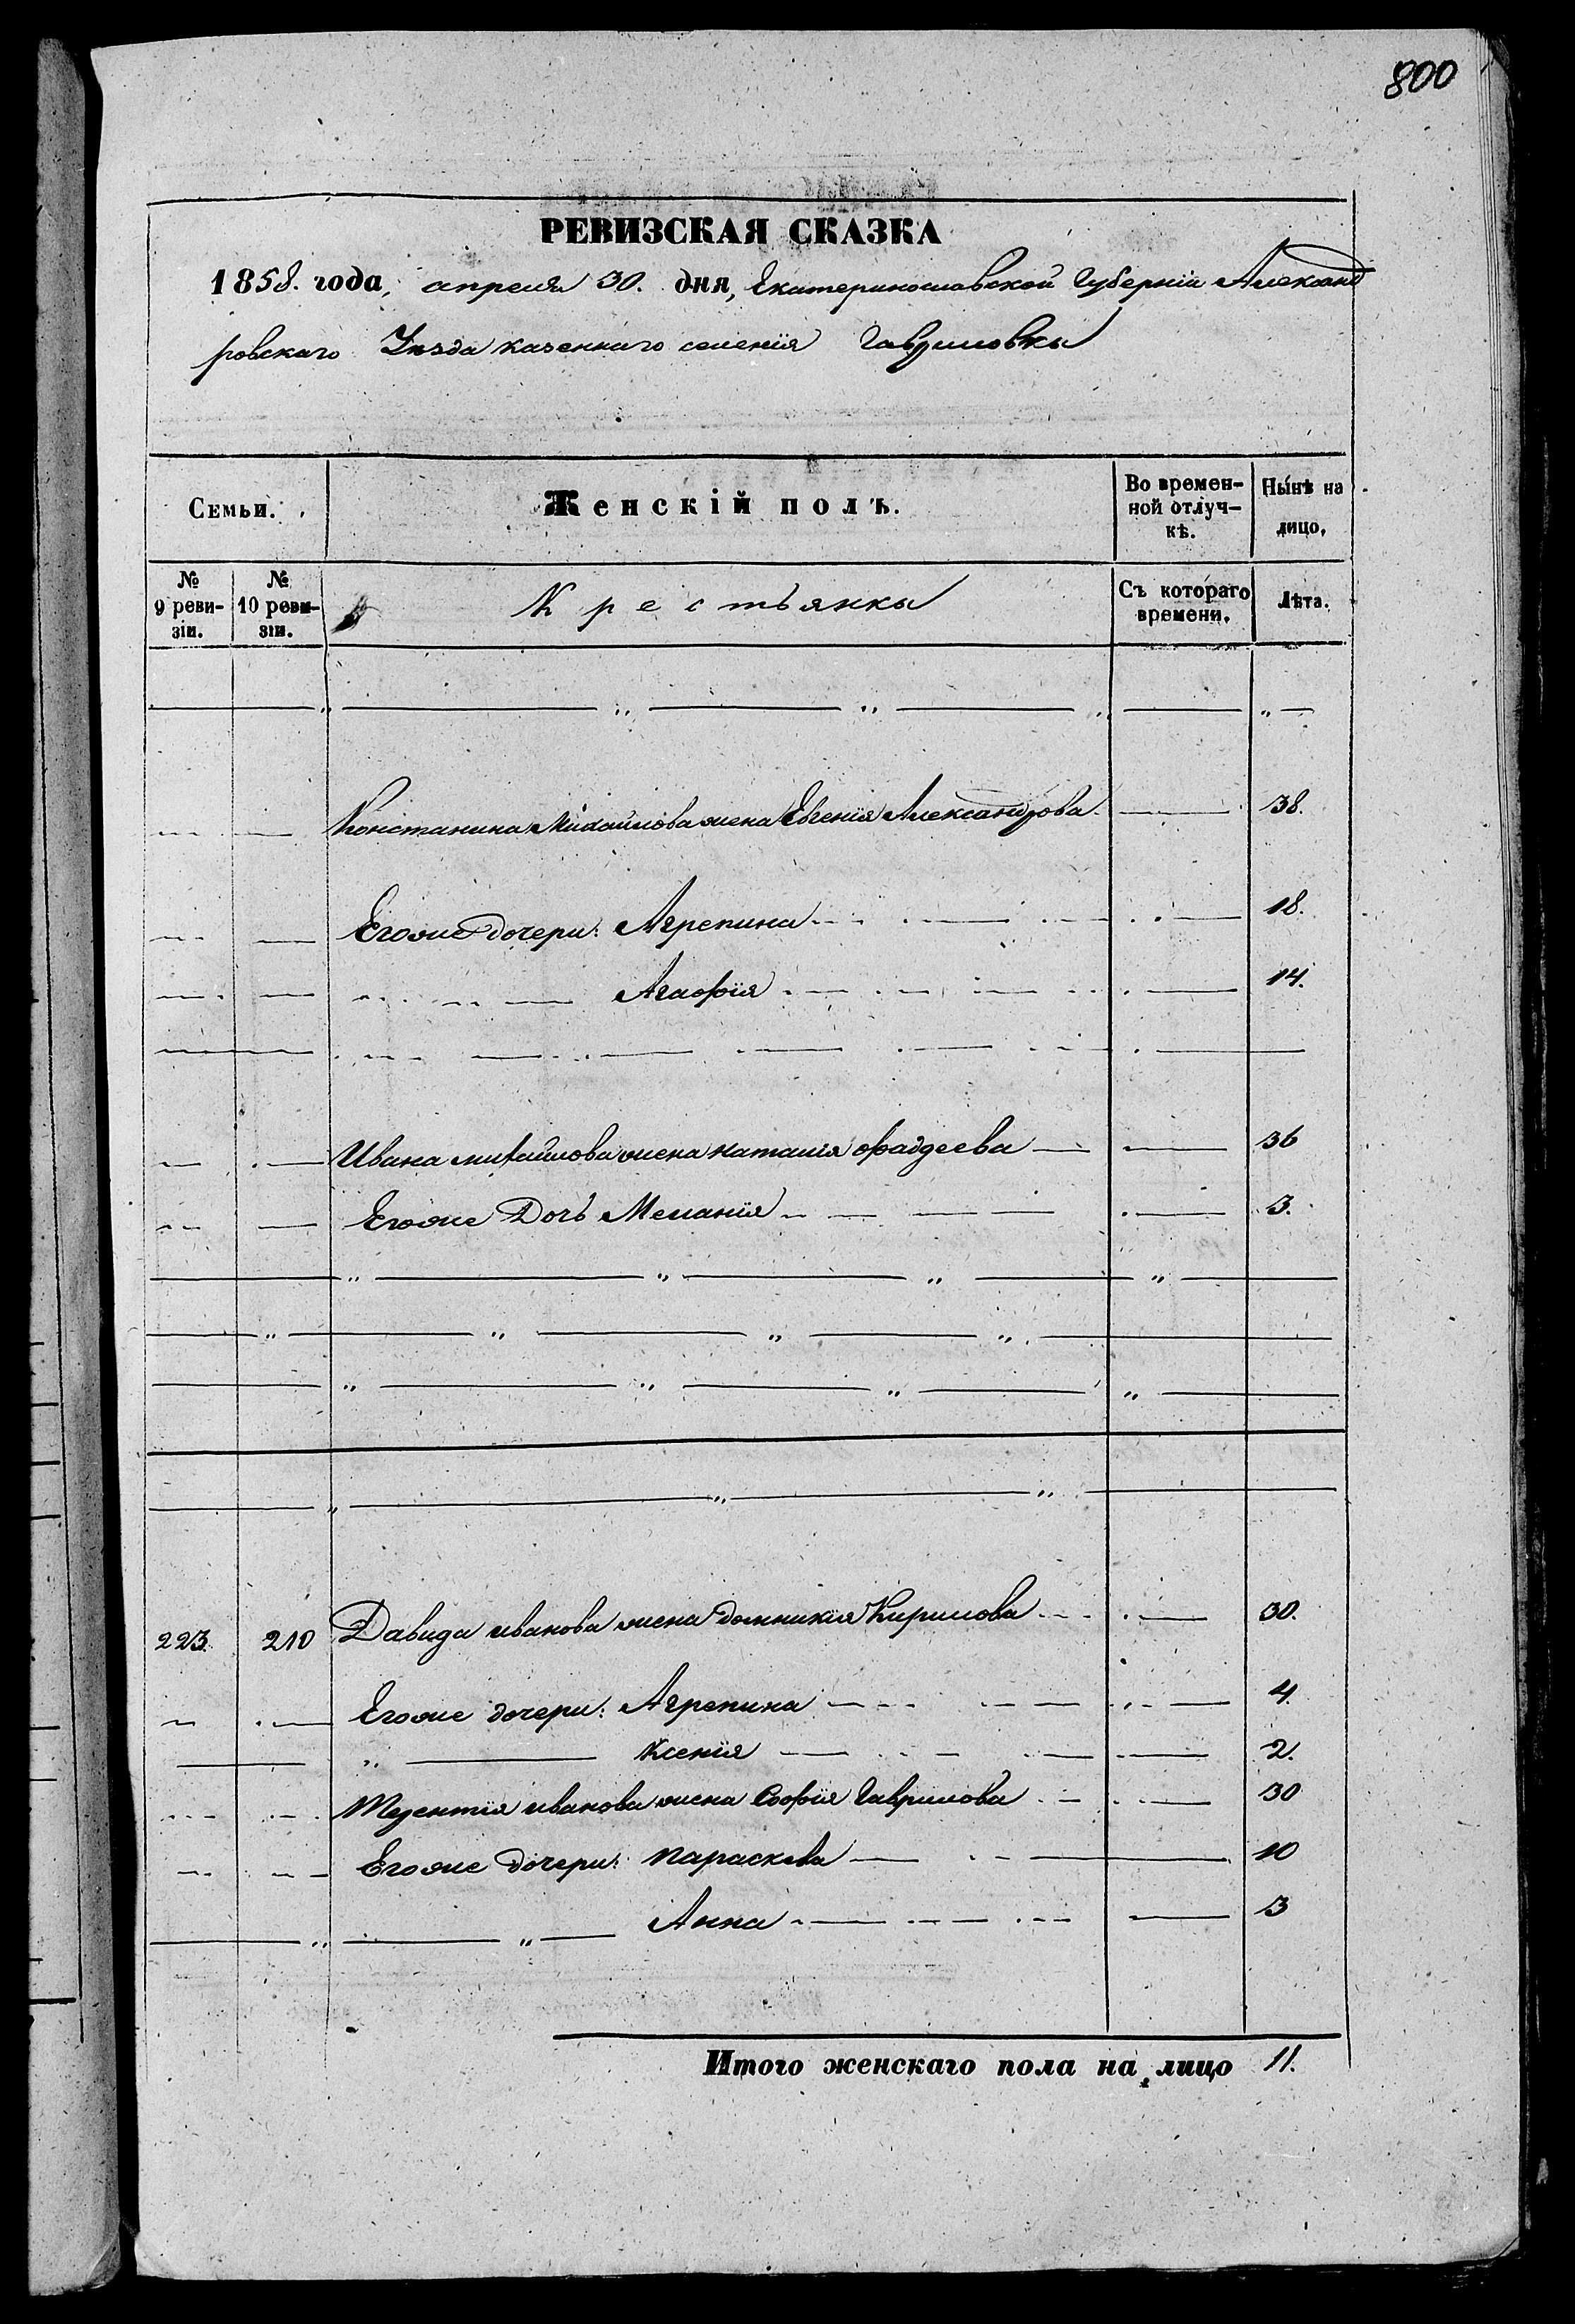 800
РЕВИЗСКАЯ СКАЗКА
1858. года, апреля 30. дня, Екатеринославской Губерніи Александ
ровскаго Уѣзда казеннаго селенія Гавриловки
Семьи. Женскій полъ. Во времен- Нынѣ на
ной отлуч- лицо.
кѣ.
№ № Крестьянки Съ котораго Лѣта.
9 реви- 10 реви- времени.
зіи. зіи.
Констанина Михайлова жена Евгенія Александрова 38.
Егоже дочери: Агрепина 18.
Агафія 14.
Ивана михайлова жена наталія фаддеева 36
Егоже Дочь Меланія 3.
223. 210 Давида иванова жена домникия Кирилова 30.
Егоже дочери: Агрепина 4
Ксенія 2.
Терентія иванова жена Софія Гаврилова 30
Егоже дочери: параскева 10
Анна 3
Итого женскаго пола на лицо 11.